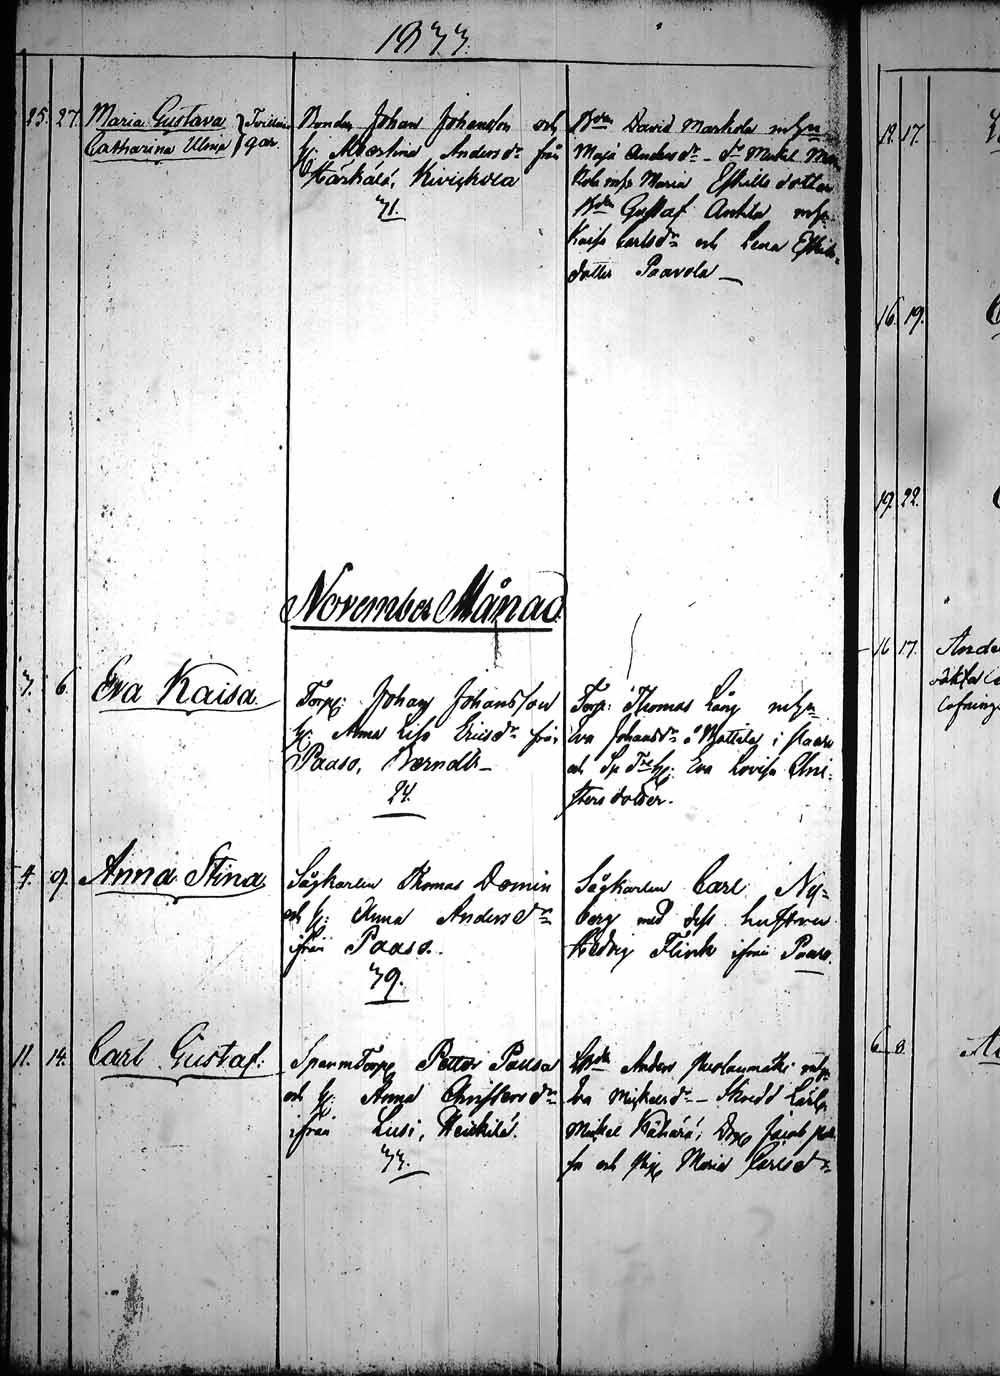 1833.
25. 27. Maria Gustava } Tvillin
Catharina Ulrica } gar.
Bonden Johan Johansson och
h: Albertina Anders dr från
Härkälä, Kiviskola
31.
Bdn David Markola m hu
Maja Anders dr - Dr Mickel Mar
kola m hu Maria Eskils dotter
Bdn Gustaf Anttila m h
Kaisa Carls dr och Lena Eskils
dotter Paavola —
November Månad
3. 6. Eva Kaisa
Torp: Johan Johansson
h: Anna Lisa Erics dr från
Paaso,
24.
Torp: Thomas Lång m hu
Eva Johans dr å Mattila i
och Eva Lovisa Chri-
stersdotter.
4. 9. Anna Stina
Sågkarlen Thomas Domin
och h: Anna Anders dr
ifrån Paaso.
39.
Sågkarlen Carl Ny-
berg med dess hustru
Hedvig Flink ifrån Paaso.
11. 14. Carl Gustaf.
Torp Petter Pausa
och h: Anna Christers dr
ifrån Lusi, Heickilä.
33.
Bdn Anders m h
Eva Mickels dr - Skrädd Lärl
Mickel Kähärä, Drg Jacob Pau
sa och Pig Maria Carls dr
12. 17.
16. 19.
19. 22.
16 17. Ande
6 8